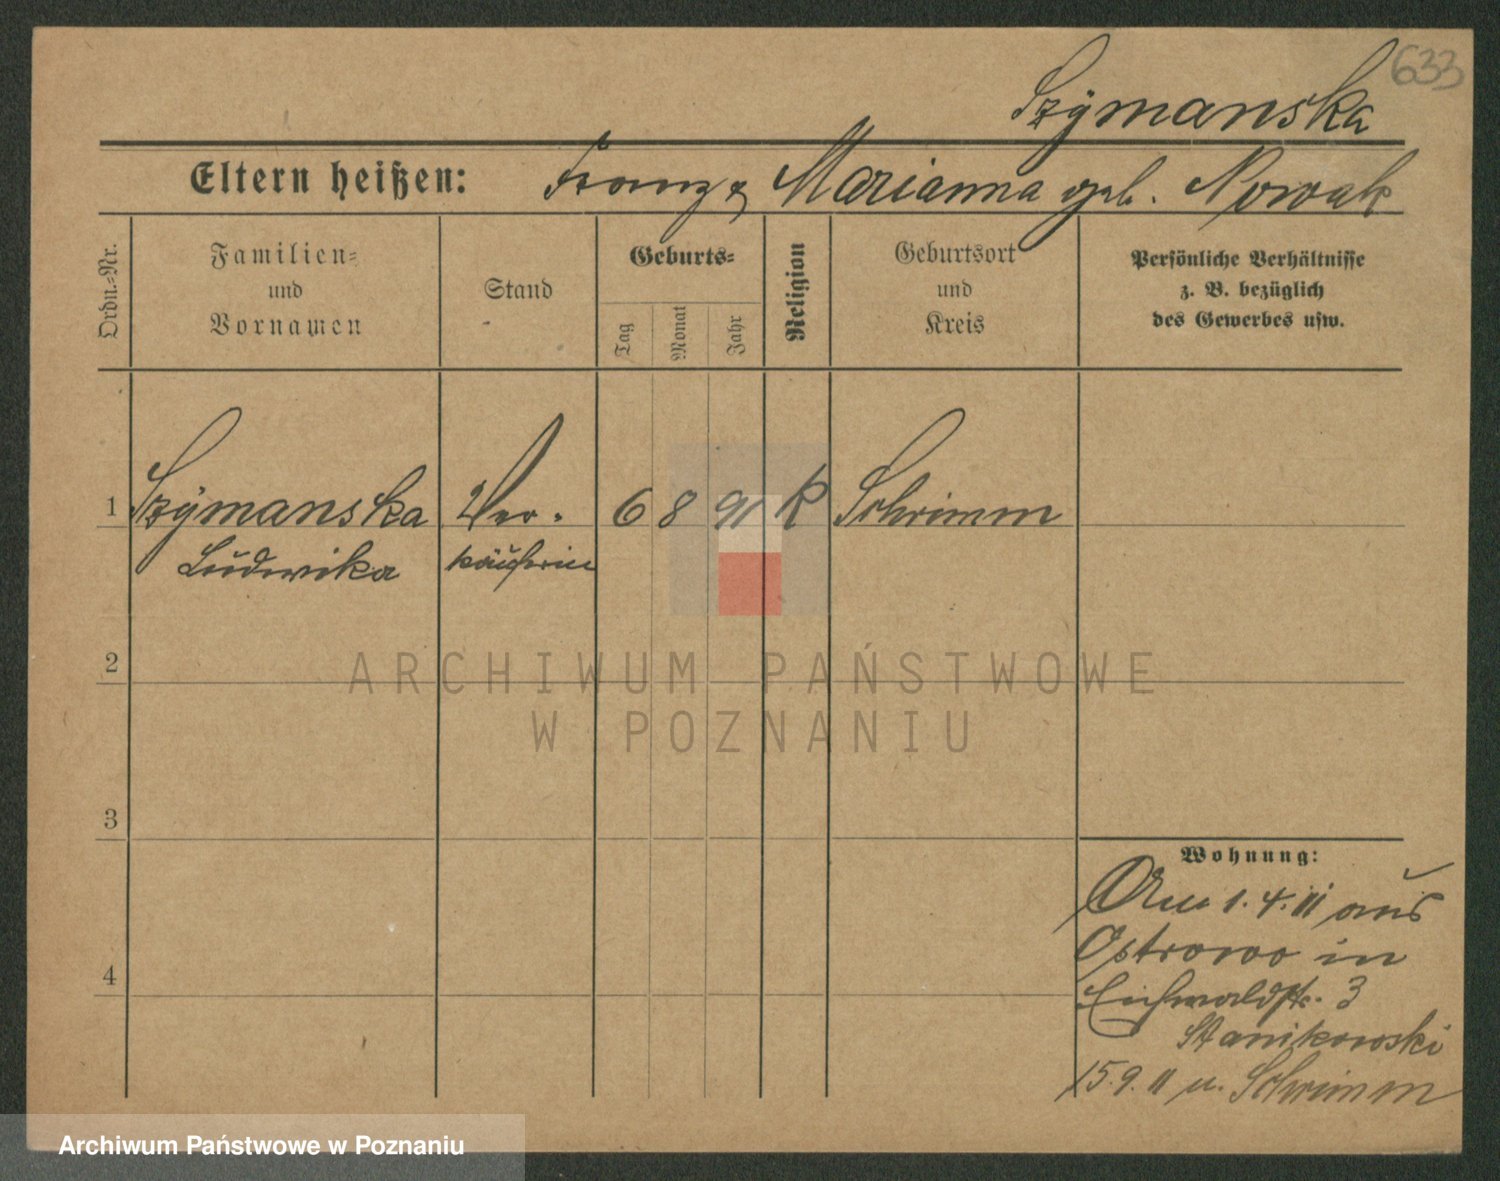 633
Szÿmanska
Eltern heißen: Franz & Marianna geb. Nowak
Ordn.-Nr.
Familien- und Vornamen
Stand
Geburts-
Tag
Monat
Jahr
Religion
Geburtsort und Kreis
Persönliche Verhältnisse
z. B. bezüglich
des Gewerbes usw.
1 Szÿmanska Ver- 6 8 91 K Schrimm
Ludwika käuferin
2
ARCHIWUM PAŃSTWOWE
W POZNANIU
3
Wohnung:
1.4.11 aus
Ostrowo in
4
Eichwaldstr. 3
Stanikowski
15.9.11 n. Schrimm
Archiwum Państwowe w Poznaniu